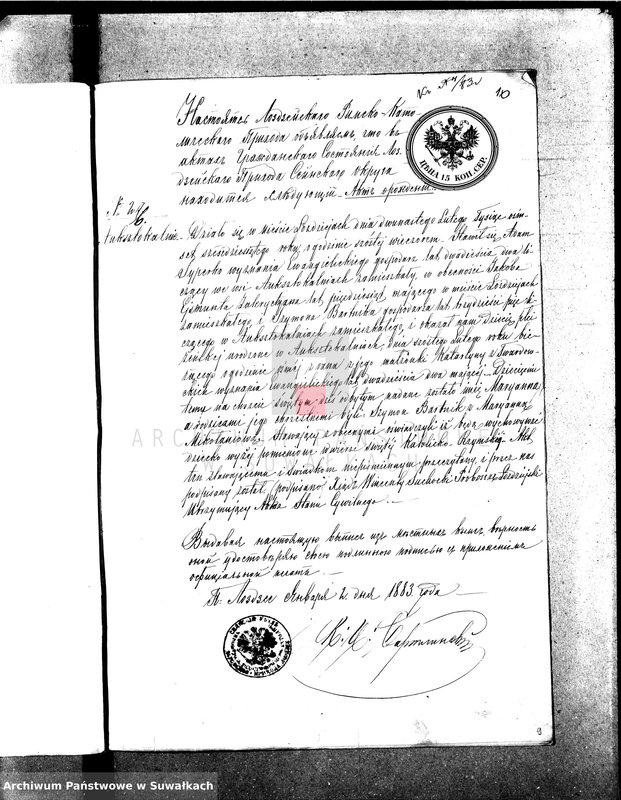 10
Настоятель Лоздзейского Римско-Като-
лического Прихода объявляет, что въ
актахъ Гражданскаго Состоянія Лоз-
дзейскаго Прихода Сейнскаго округа
находится слѣдующій Актъ
ЦѢНА 15 КОП. СЕР.
Działo się w mieście Łozdziejach dnia dwunastego Lutego Tysiąc ośm-
set sześćdziesiątego roku, o godzinie szóstej wieczorem. Stawił się Adam
wyznania Ewangielickiego gospodarz lat dwadzieścia dwa li-
czący we wsi Auksztokalniach zamieszkały, w obecności Jakóba
lat pięćdziesiąt mającego w mieście Łozdziejach
zamieszkałego i Szymona Bartnika gospodarza lat trzydzieści pięć li-
czącego w Auksztokalniach zamieszkałego, i okazał nam Dziecię płci
żeńskiej urodzone w Auksztokalniach, dnia szóstego Lutego roku bie-
żącego o godzinie z rana z jego małżonki Katarzyny z
wyznania ewangielickiego lat dwadzieścia dwa mającej. Dziecięciu
temu na chrzcie świętym dziś odbytym nadane zostało imię Maryanna
a rodzicami jego chrzestnemi byli Szymon Bartnik i Maryanna
Stawający obecnymi oświadczył iż będą wychowywać
dziecko wyżej pomienione w wierze świętej Katolicko Rzymskiej. Akt
ten stawającemu i świadkom niepiśmiennym przeczytany, i przez nas
podpisany został (podpisano) Xiądz Wincenty Suchocki Proboszcz Łozdziejski
Utrzymujący Akta Stanu Cywilnego.
Выдавая настоящую выпись изъ мѣстныхъ книгъ, вѣрность
оной удостовѣряю своею подлинною подписью съ приложеніемъ
оффиціальной печати.
П. Лоздзее Января 2 дня 1883 года
9
ARCHIWUM PAŃSTWOWE
W SUWAŁKACH
Archiwum Państwowe w Suwałkach